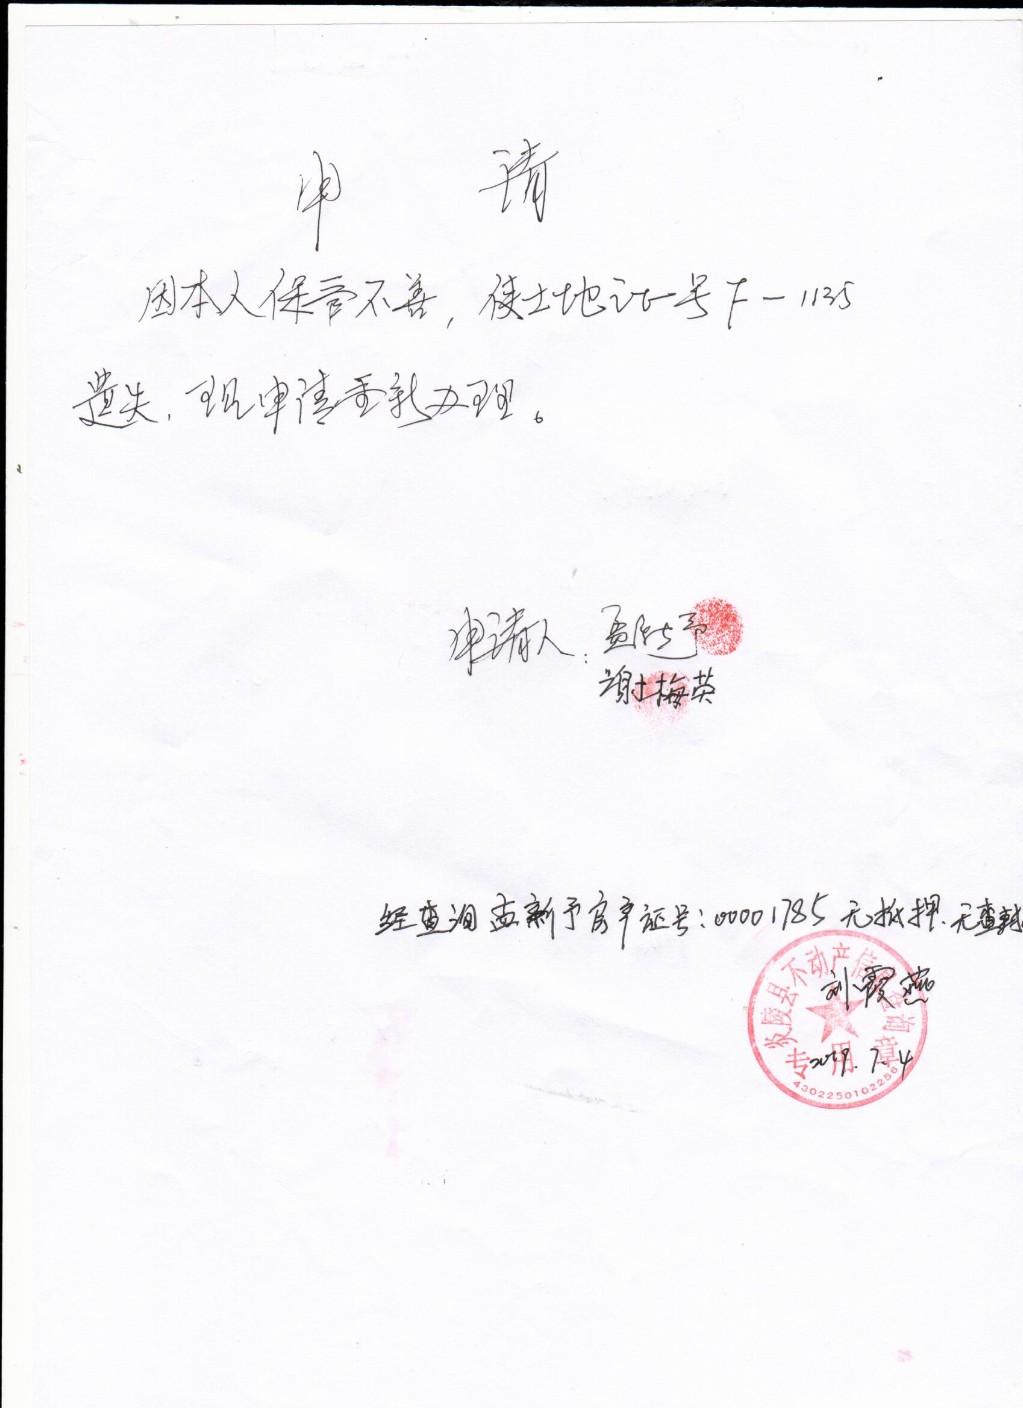 申 请
因本人保管不善，使土地证号F－1135
遗失，现申请重新办理。
申请人：孟新予
谢梅英
经查询孟新予房产证号：00001785 无抵押、无查封
刘霞燕
2019.7.4
炎陵县不动产信息查询
专用章
4302250102256